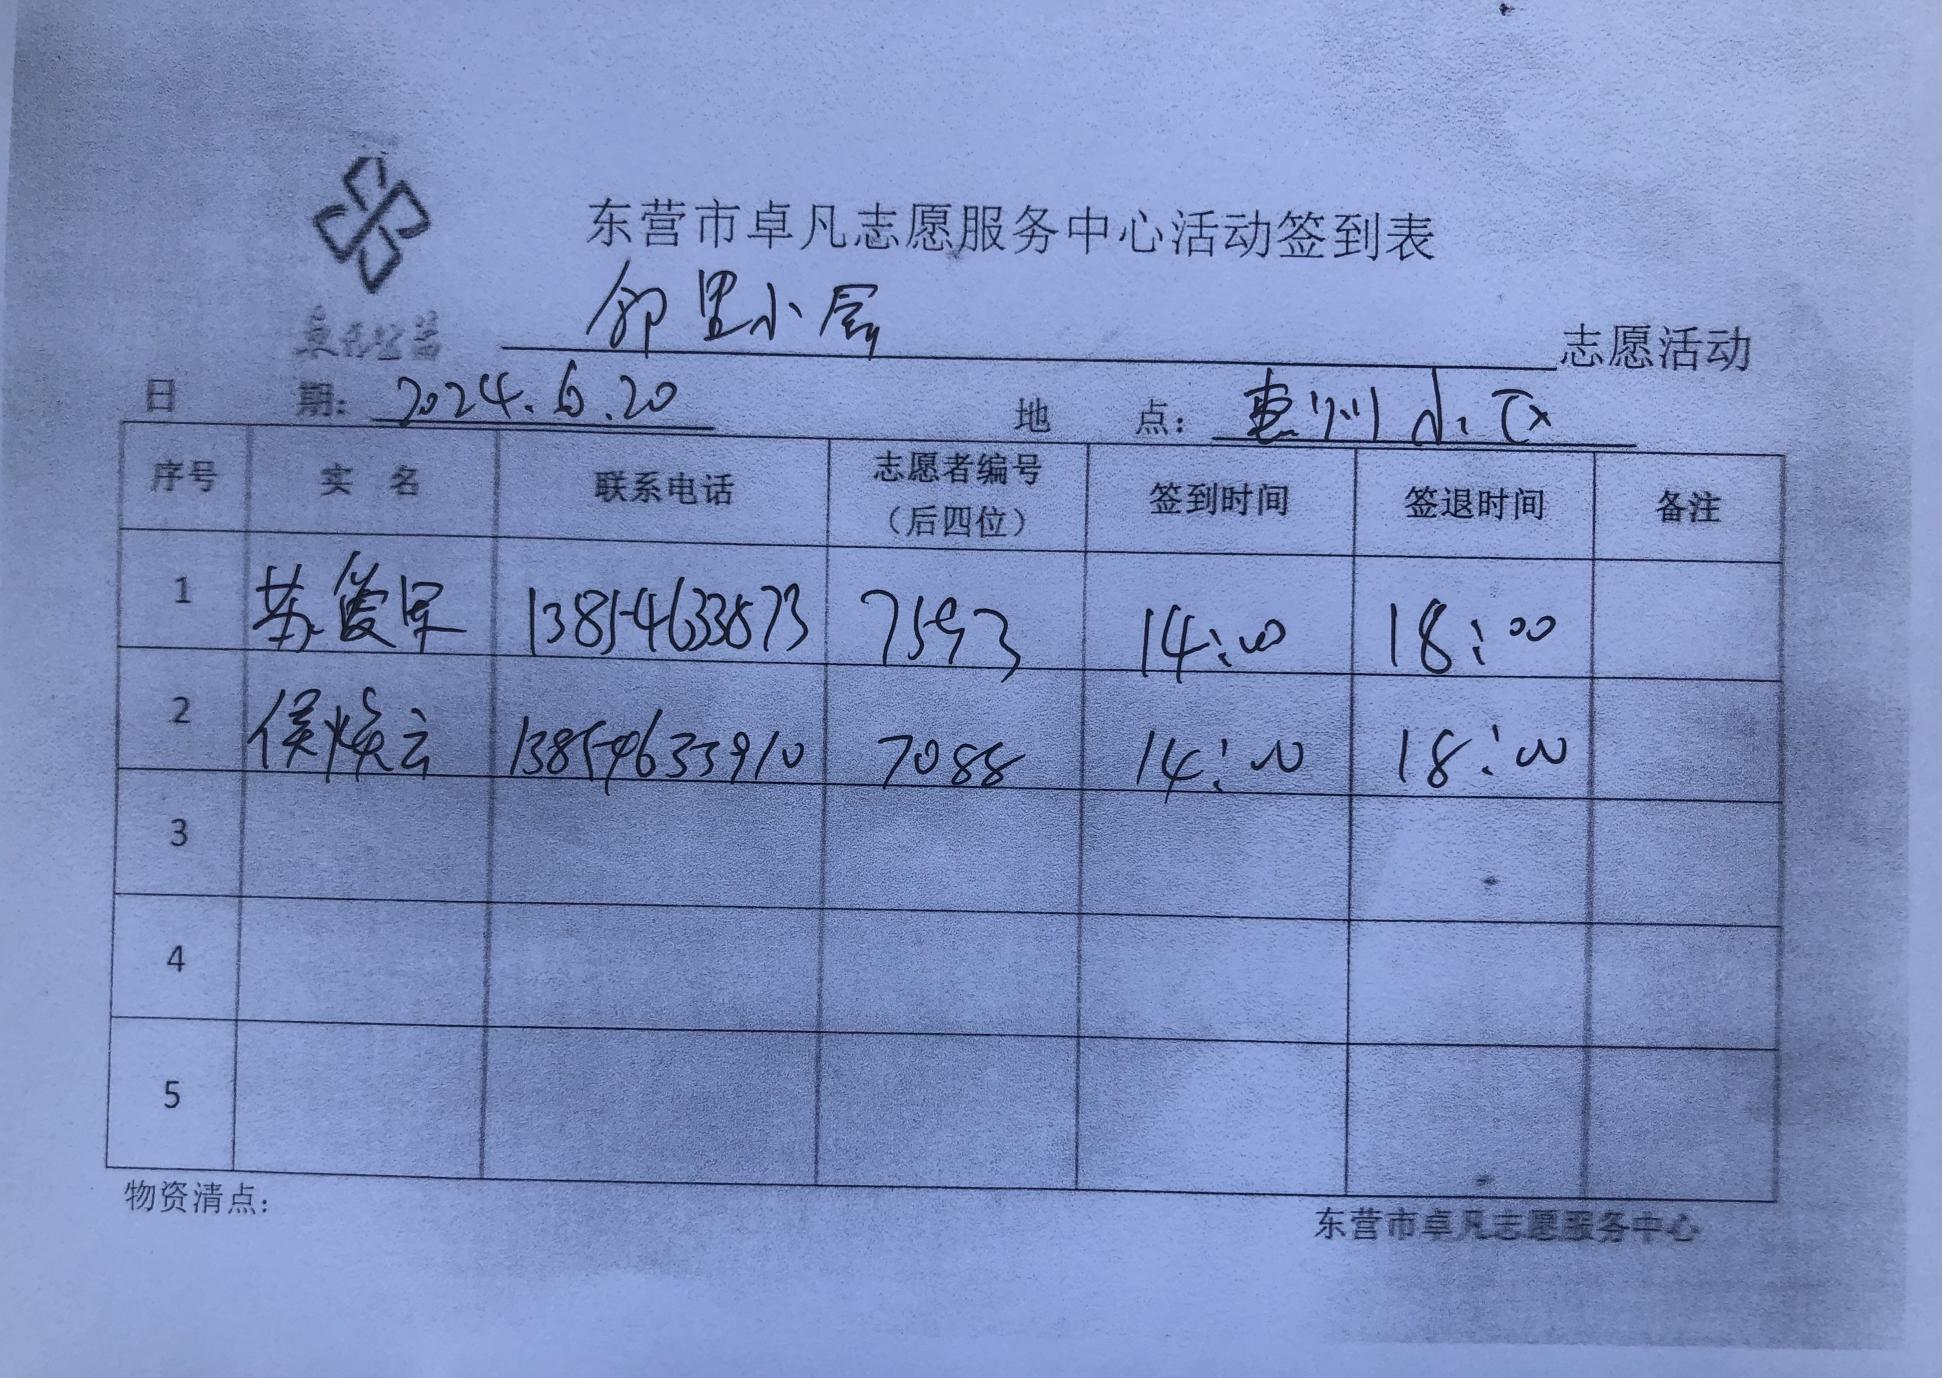 东营市卓凡志愿服务中心活动签到表
卓凡公益
邻里小屋 志愿活动
日 期: 2024.6.20 地 点: 惠州小区
序号 实 名 联系电话 志愿者编号（后四位） 签到时间 签退时间 备注
1 苏爱军 13854633873 7593 14:00 18:00
2 侯焕云 13854633910 7088 14:00 18:00
3
4
5
物资清点:
东营市卓凡志愿服务中心